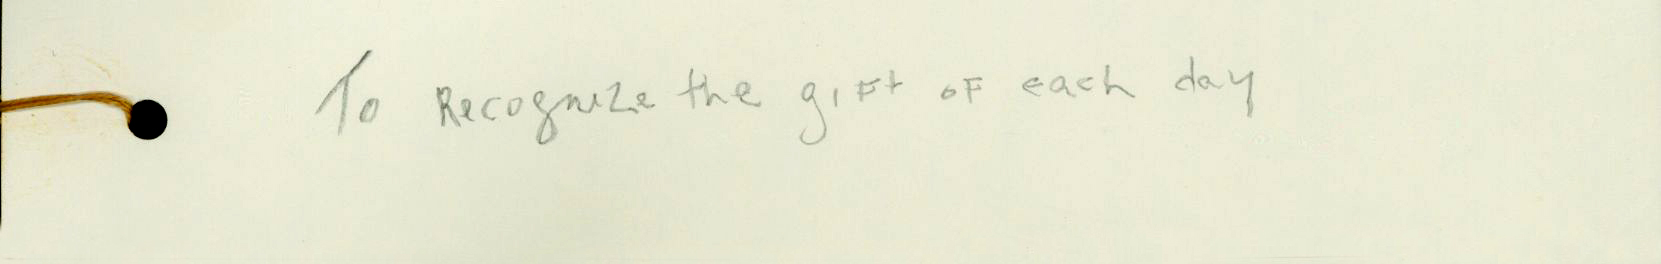 To Recognize the gift of each day